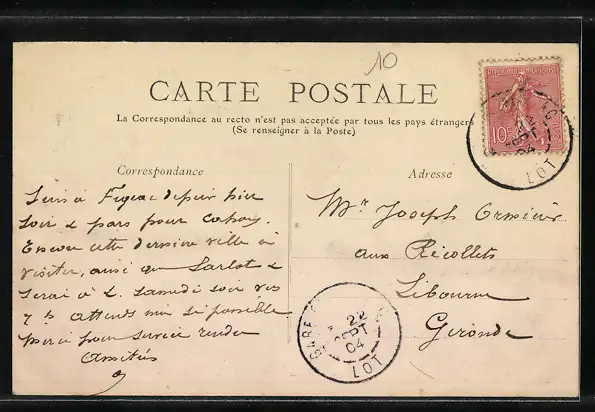 10
CARTE POSTALE
La Correspondance au recto n'est pas acceptée par tous les pays étrangers
(Se renseigner à la Poste)
Correspondance
Adresse
10
22
SEPT
04
LOT
Suis à Figeac depuis hier
soir & pars pour Cahors.
Encore cette dernière ville à
visiter, ainsi que Sarlat &
serai à L. samedi soir vers
7 h attends moi si possible
Merci pour service rendu
Amitiés
Mr Joseph
aux Récollets
Libourne
Gironde
GARE
22
SEPT
04
LOT